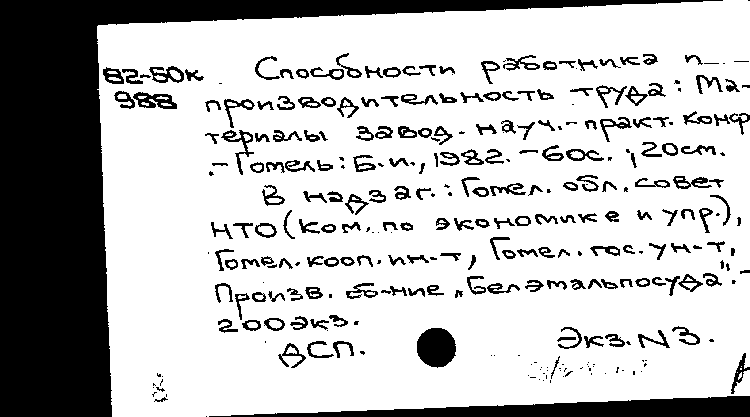 82-50к Способности работника и
988 производительность труда: Ма-
териалы завод. науч.-практ. конф
.-Гомель: Б.и., 1982. -60с.; 20см.
В надзаг.: Гомел. обл. совет
НТО (ком. по экономике и упр.),
Гомел. кооп. ин-т, Гомел. гос. ун-т,
Произв. об-ние „Белэмальпосуда".-
200экз.
ДСП. Экз. N3.